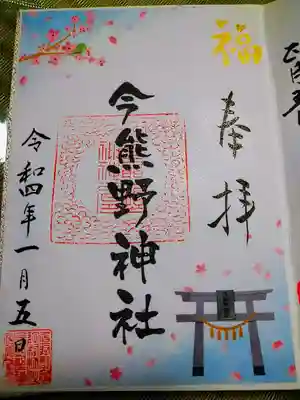 福
奉拝
今熊野神社
令和四年一月五日